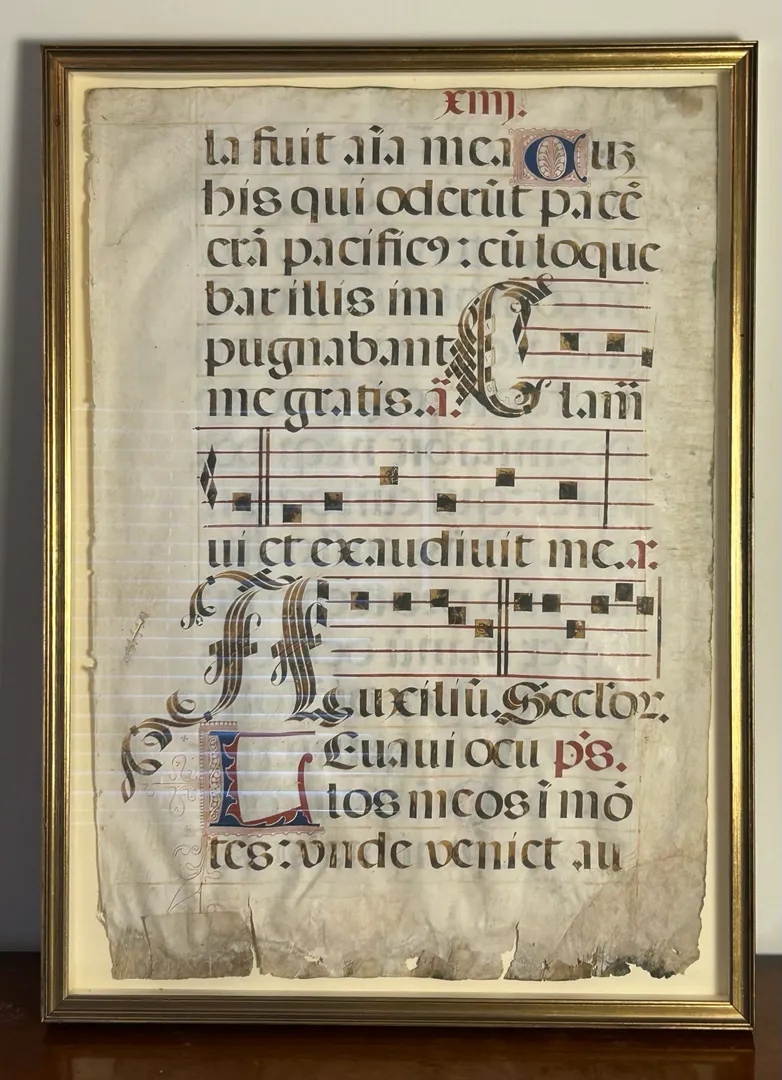 xiiij.
ta fuit aīa mea Cuʒ
his qui oderūt pacē
erā pacificꝰ: cū loque
bar illis im
pugnabant
me gratis. ā. Clam̄
ui et exaudiuit me. a:
Auxiliū. Seclor.
LEuaui ocu p̄s.
los meos ī mō
tes: vnde veniet au